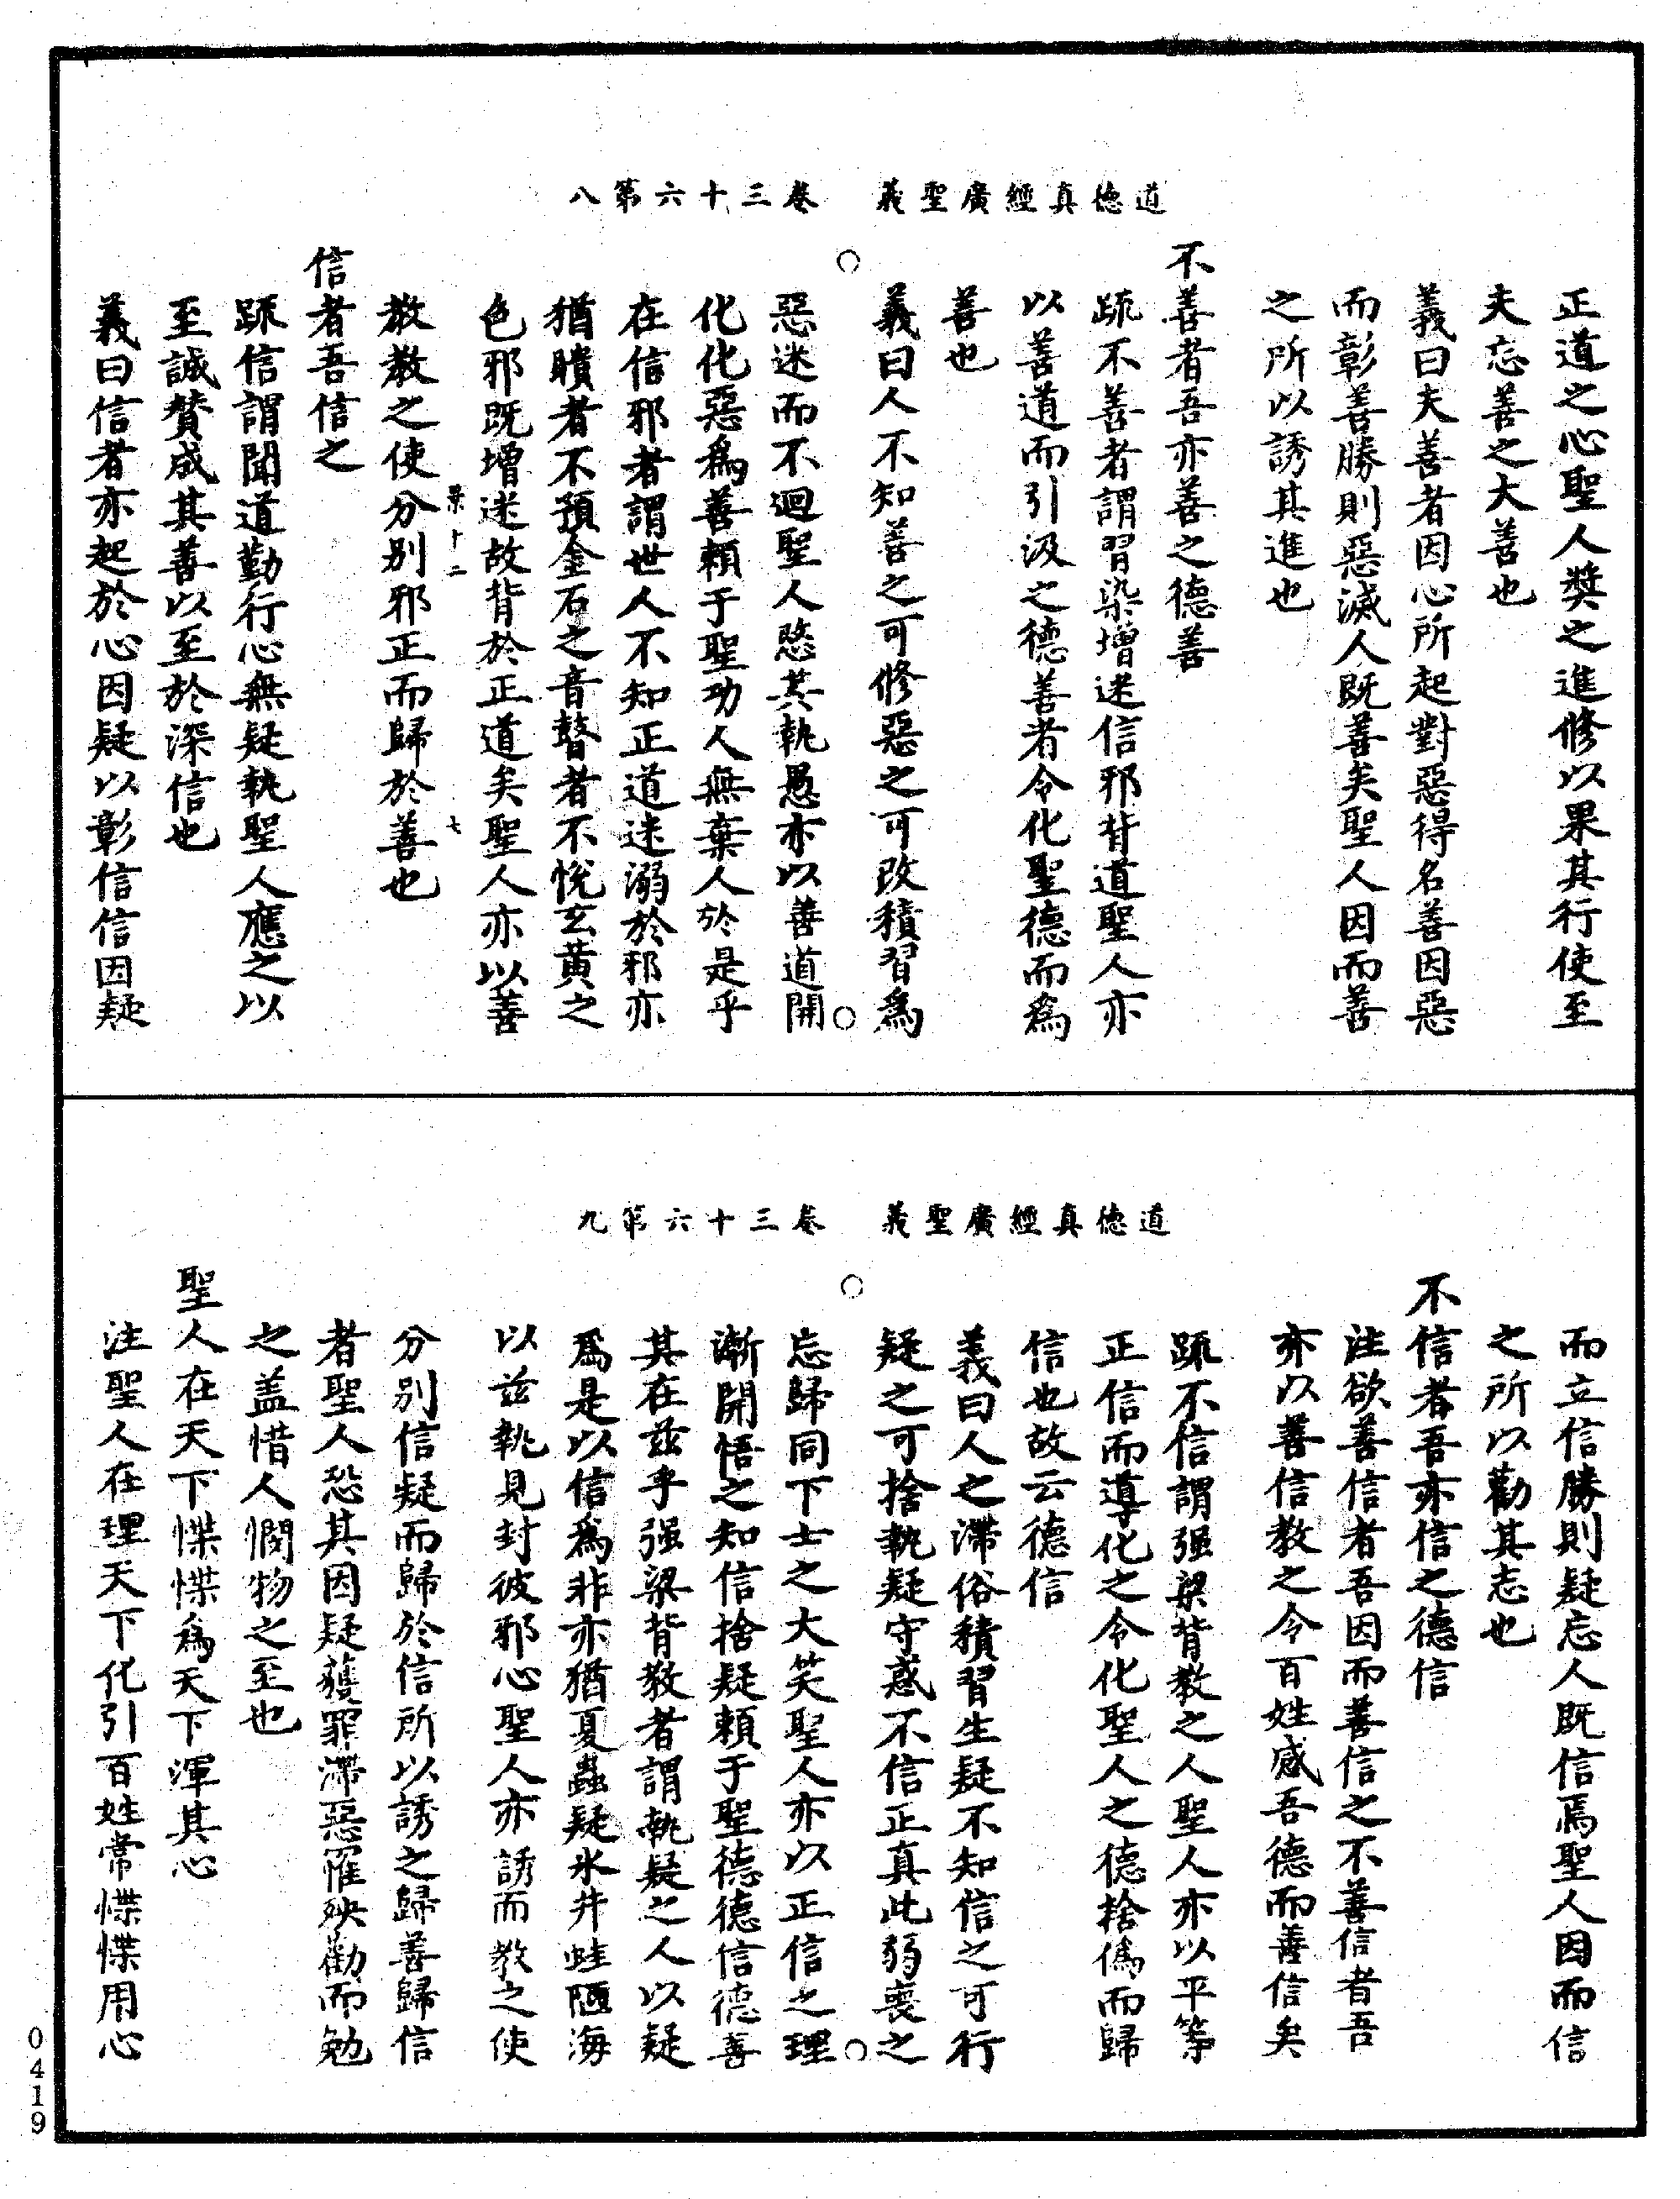 道德真經廣聖義　卷三十六第八
正道之心聖人奬之進修以果其行使至
夫忘善之大善也
義曰夫善者因心所起對惡得名善因惡
而彰善勝則惡滅人既善矣聖人因而善
之所以誘其進也
不善者吾亦善之德善
疏不善者謂習染增迷信邪背道聖人亦
以善道而引汲之德善者令化聖德而為
善也
義曰人不知善之可修惡之可改積習為
惡迷而不迴聖人愍其執愚亦以善道開
化化惡為善賴于聖功人無棄人於是乎
在信邪者謂世人不知正道迷溺於邪亦
猶聵者不預金石之音瞽者不悅玄黃之
色邪既增迷故背於正道矣聖人亦以善
景十二　七
教教之使分別邪正而歸於善也
信者吾信之
疏信謂聞道勤行心無疑執聖人應之以
至誠贊成其善以至於深信也
義曰信者亦起於心因疑以彰信信因疑
道德真經廣聖義　卷三十六第九
而立信勝則疑忘人既信焉聖人因而信
之所以勸其志也
不信者吾亦信之德信
注欲善信者吾因而善信之不善信者吾
亦以善信教之令百姓感吾德而善信矣
疏不信謂强梁背教之人聖人亦以平等
正信而導化之令化聖人之德捨偽而歸
信也故云德信
義曰人之滯俗積習生疑不知信之可行
疑之可捨執疑守惑不信正真此弱喪之
忘歸同下士之大笑聖人亦以正信之理
漸開悟之知信捨疑賴于聖德德信德善
其在兹乎强梁背教者謂執疑之人以疑
為是以信為非亦猶夏蟲疑氷井蛙陋海
以兹執見封彼邪心聖人亦誘而教之使
分別信疑而歸於信所以誘之歸善歸信
者聖人恐其因疑獲罪滯惡罹殃勸而勉
之盖惜人憫物之至也
聖人在天下惵惵為天下渾其心
注聖人在理天下化引百姓常惵惵用心
0419